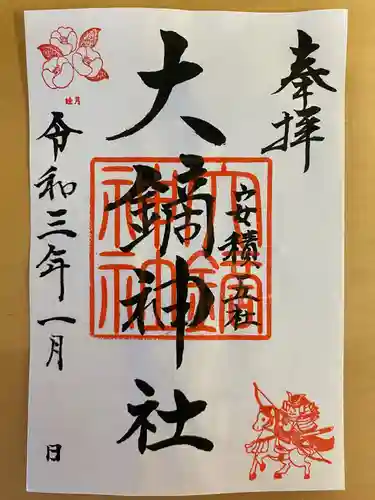 奉拝
安積五社
大鏑神社
令和三年一月 日
睦月